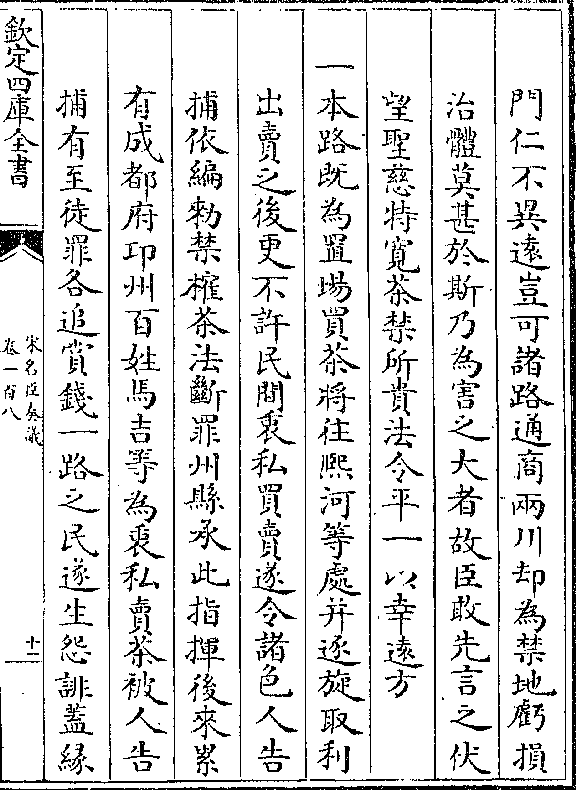 門仁不異遠豈可諸路通商兩川却為禁地虧損
治體莫甚於斯乃為害之大者故臣敢先言之伏
望聖慈特寛茶禁所貴法令平一以幸逺方
一本路既為置場買茶將往熈河等處并逐旋取利
出賣之後更不許民間衷私買賣遂令諸色人告
捕依編勅禁榷茶法斷罪州縣承此指揮後來累
有成都府邛州百姓馬吉等為衷私賣茶被人告
捕有至徒罪各追賞錢一路之民遂生怨誹蓋縁
欽定四庫全書
宋名臣奏議
卷一百八
十二